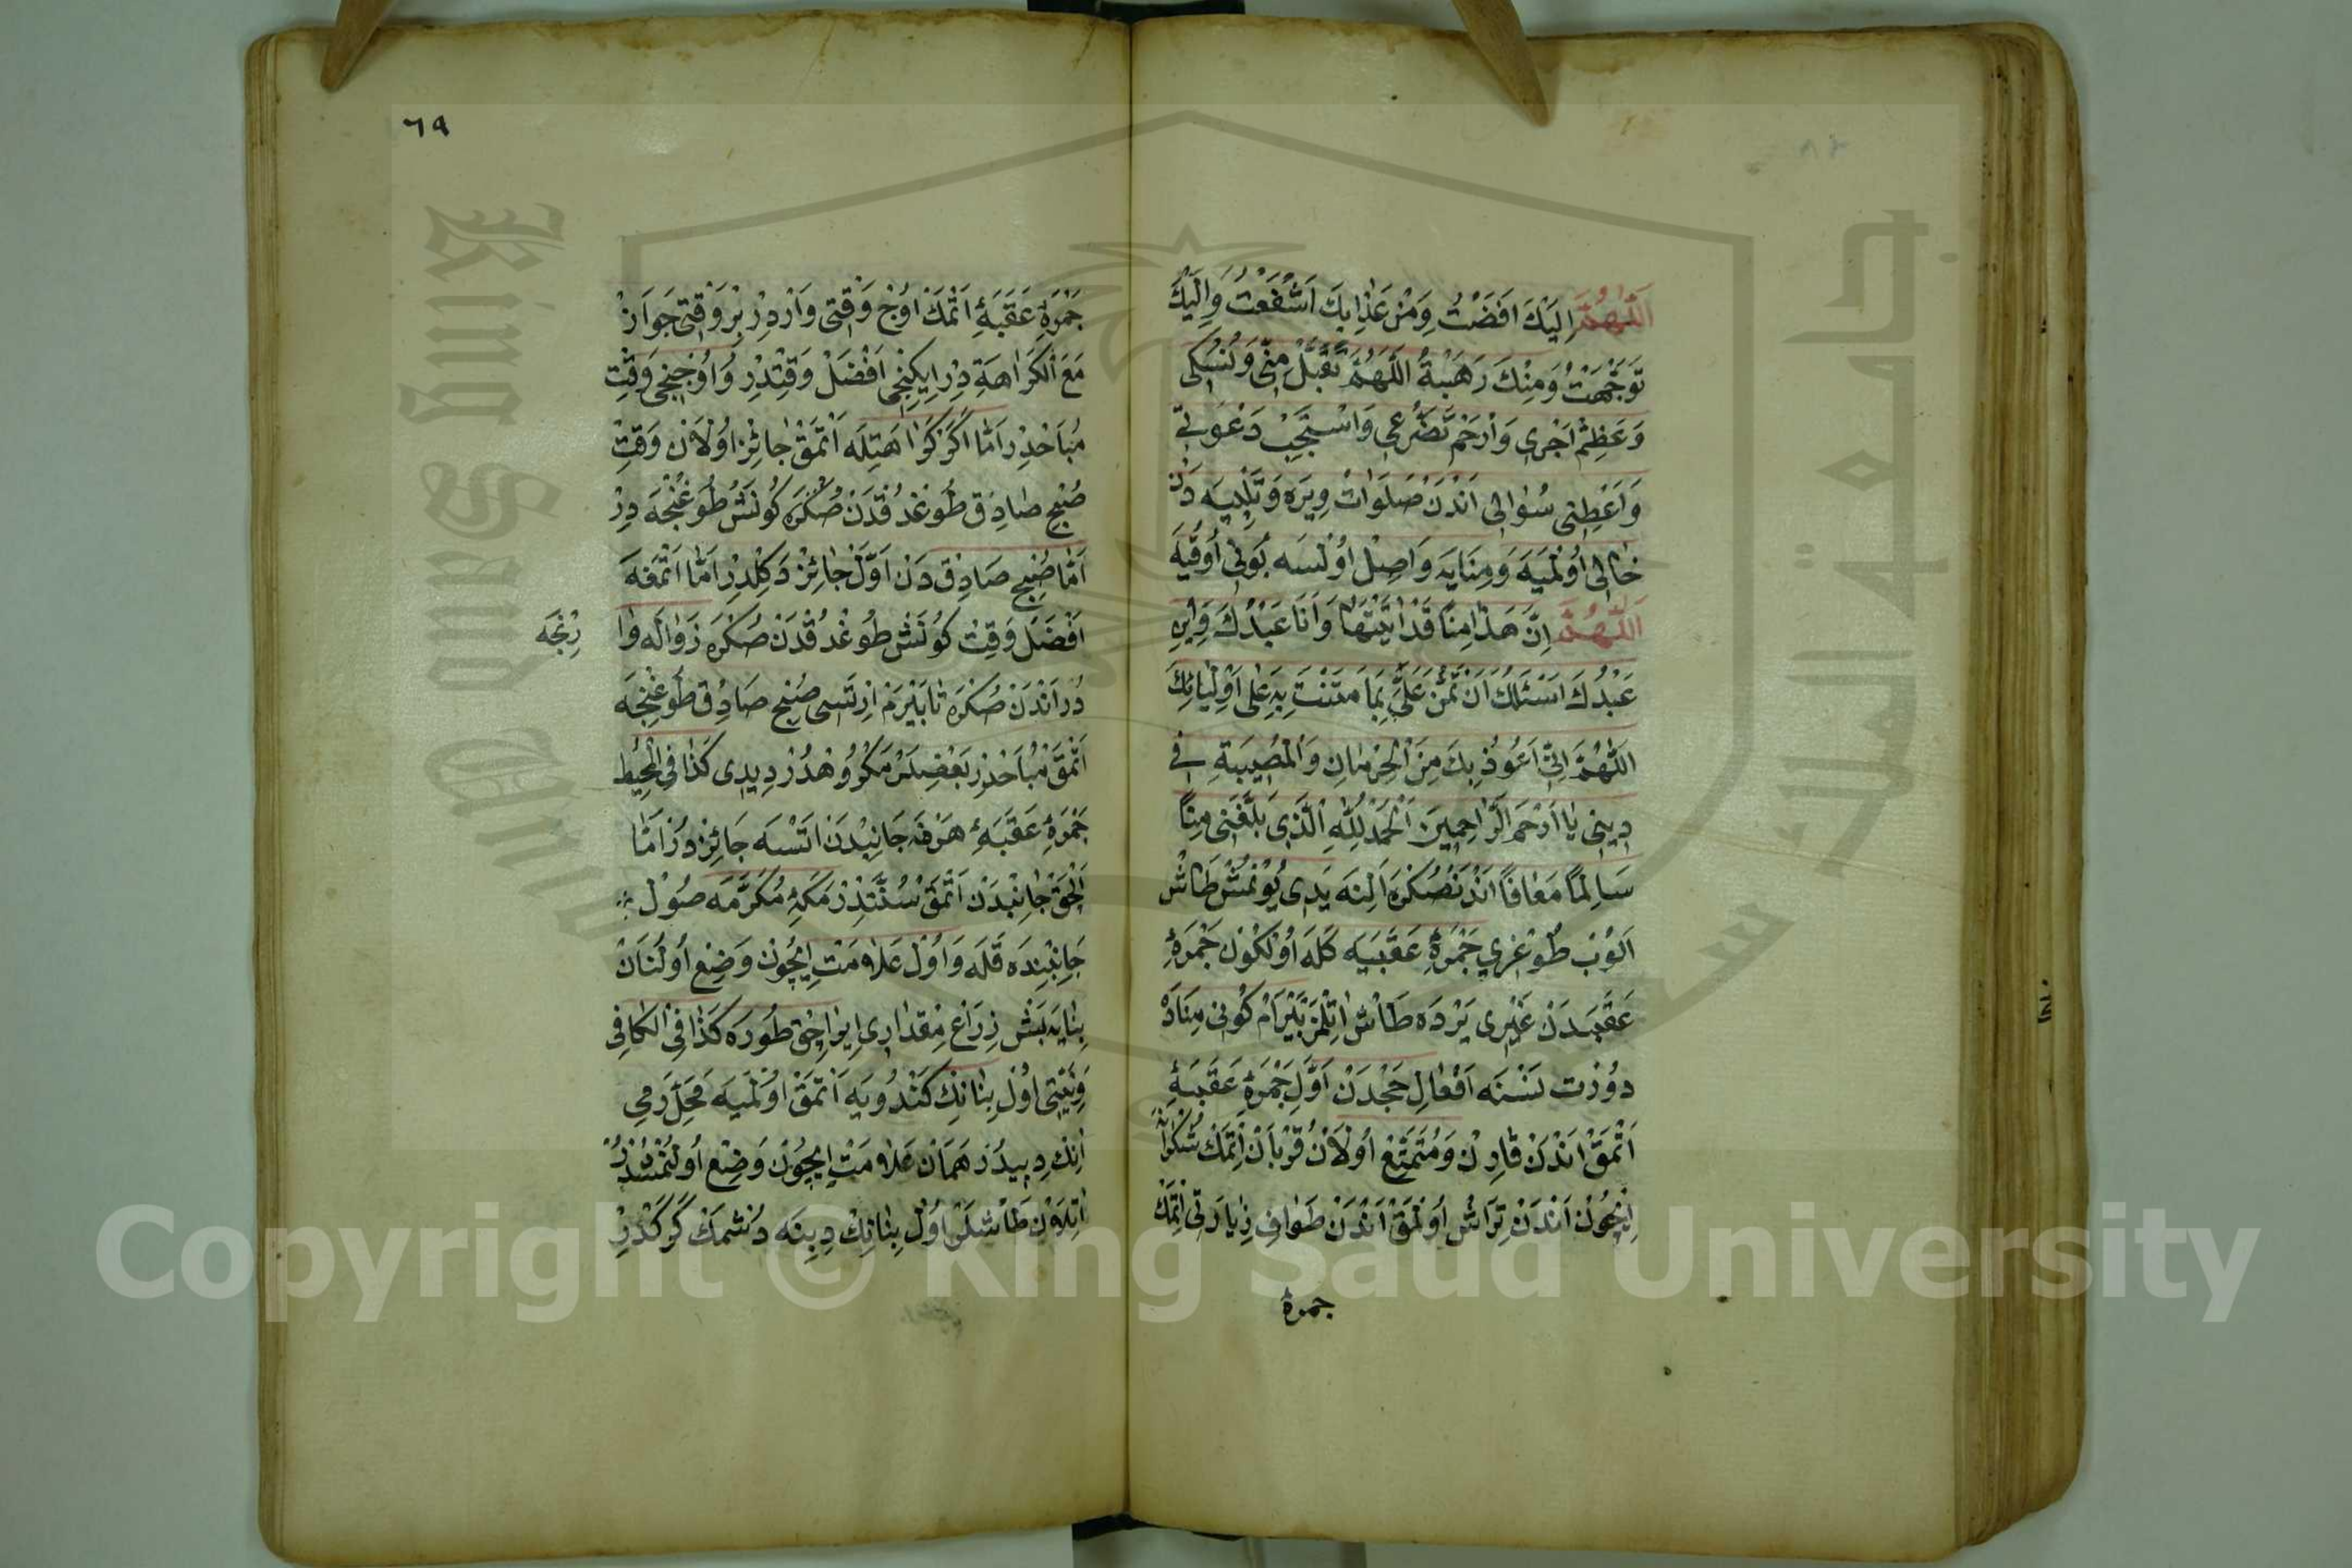 اَللّٰهُمَّ اِلَيْكَ اَفَضْتُ وَمِنْ عَذَابِكَ اَشْفَقْتُ وَاِلَيْكَ
تَوَجَّهْتُ وَمِنْكَ رَهَبْتُ اَللّٰهُمَّ تَقَبَّلْ مِنِّي وَنُسُكِي
وَعَظِّمْ اَجْرِي وَارْحَمْ تَضَرُّعِي وَاسْتَجِبْ دَعْوَتِي
وَاَعْطِنِي سُؤَالِي اَنْدَنْ صَلَوَاتْ وِيرَه وَتَلْبِيَه دَنْ
خَالِي اُولْمَيَه وَمِنَايَه وَاصِلْ اُولْسَه بُونِي اُوقُيَه
اَللّٰهُمَّ اِنَّ هَذَا مِنًا قَدْ اَتَيْتُهَا وَاَنَا عَبْدُكَ وَابْنِ
عَبْدُكَ اَسْئَلُكَ اَنْ تَمُنَّ عَلَيَّ بِمَا مَنَنْتَ بِهِ عَلَى اَوْلِيَائِكَ
اَللّٰهُمَّ اِنِّي اَعُوذُ بِكَ مِنَ الْحِرْمَانِ وَالْمُصِيبَةِ فِي
دِينِي يَا اَرْحَمَ الرَّاحِمِينَ اَلْحَمْدُ لِلّٰهِ الَّذِي بَلَّغَنِي مِنًا
سَالِمًا مَعَافًا اَنْدَنْصُكْرَه اَلِنَه يَدِي يُونْمُشْ طَاشْ
اَلُوبْ طُوغْرِي جَمْرَۀِ عَقَبَيَه كَلَه اُولْكُونْ جَمْرَۀِ
عَقَبَدَنْ غَيْرِي يَرْدَه طَاشْ اتِلْمَزْ بَيْرَامْ كُونِي مِنَادَه
دورت نَسْنَه اَفْعَالِ حَجْدَنْ اَوَّلْ جَمْرَۀِ عَقَبَۀِ
اَتْمَقْ اَنْدَنْ قَارِنْ وَمُتَمَتِّعْ اُولَانْ قُرْبَانْ اِتْمَكْ شُكْرَانَه
اِيچُونْ اَنْدَنْ تِرَاشْ اُولْمَقْ اَنْدَنْ طَوَافِ زِيَارَتِي اِتْمَكْ
جمرۀ
٦٩
جَمْرَۀِ عَقَبَۀِ اَتْمَكْ اُوچْ وَقْتِي وَارْدِرْ بِرْ وَقْتِي جَوَازْ
مَعَ الْكَرَاهَةِ دِرْ اِيكِنْجِي اَفْضَلْ وَقْتِدِرْ وَاُوچُنْجِي وَقْتِ
مُبَاحْدِرْ اَمَّا اَكَرْ كَرَاهَتِلَه اَتْمَقْ جَائِزْ اُولَانْ وَقْتِ
صُبْحِ صَادِقْ طُوغْدُقْدَنْ صُكْرَه كُونَشْ طُوغُنْجَه دِرْ
اَمَّا صُبْحِ صَادِقْ دَنْ اَوَّلْ جَائِزْ دَكِلْدِرْ اَمَّا اَتْمَغَه
اَفْضَلْ وَقْتِ كُونَشْ طُوغْدُقْدَنْ صُكْرَه زَوَالَه وَا
رِنْجَه
دُرْ اَنْدَنْ صُكْرَه تَا بَيْرَمْ اِرْتَسِي صُبْحِ صَادِقْ طُوغِنْجَه
اَتْمَقْ مُبَاحْدِرْ بَعْضِلَرْ مَكْرُوهْدُرْ دِيدِي كَذَا فِي الْمُحِيطِ
جَمْرَۀِ عَقَبَۀِ هَرْ نَه جَانِبْدَنْ اتَسَه جَائِزْدُرْ اَمَّا
الْچَقْ جَانِبْدَنْ اَتْمَقْ سُنَّتْدِرْ مَكَّۀِ مُكَرَّمَه صُولْ
جَانِبِنْدَه قَلَه وَاُولْ عَلَامَتْ اِيچُونْ وَضِعْ اُولُنَانْ
بِنَايَه بَشْ ذِرَاعْ مِقْدَارِي اِيرَاجِقْ طُورَه كَذَا فِي الْكَافِي
وَنِيَّتِي اُولْ بِنَانِكْ كَنْدُويَه اَتْمَقْ اُولْمَيَه مَحَلِّ رَمِي
اَنِكْ دِيبِيدُرْ هَمَانْ عَلَامَتْ اِيچُونْ وَضِعْ اُولُنْمُشْدُرْ
اتِلَانْ طَاشْلَرْ اُولْ بِنَانِكْ دِيبِنَه دُشْمَكْ كَرَكْدِرْ